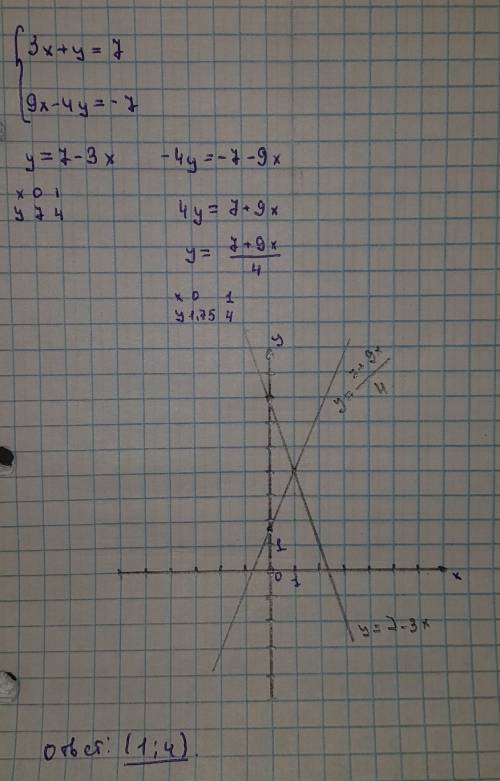 3x+y=7
9x-4y=-7
y=7-3x -4y=-7-9x
x 0 1
y 7 4
4y=7+9x
y= 7+9x
4
x 0 1
y 1.75 4
y
y= 7+9x
4
1
0 1 x
y=7-3x
Ответ: (1;4).